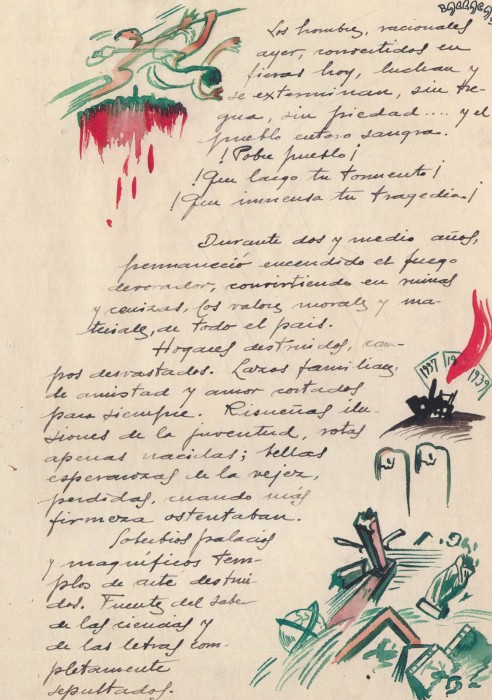 BARRACA
Los hombres, racionales
ayer, convertidos en
fieras hoy, luchan y
se exterminan, sin tre-
gua, sin piedad.... y el
pueblo entero sangra.
¡Pobre pueblo!
¡Que largo tu tormento!
¡Que inmensa tu tragedia!
Durante dos y medio años,
permaneció encendido el fuego
devorador, convirtiendo en ruinas
y cenizas, los valores morales y ma-
teriales, de todo el país.
Hogares destruidos, cam-
pos desvastados. Lazos familiares,
de amistad y amor cortados
para siempre. Risueñas ilu-
siones de la juventud, rotas
apenas nacidas; bellas
esperanzas de la vejez,
perdidas, cuando más
firmeza ostentaban.
Soberbios palacios
y magníficos tem-
plos de arte destrui-
dos. Fuentes del saber
de las ciencias y
de las letras com-
pletamente
sepultados.
1937
1939